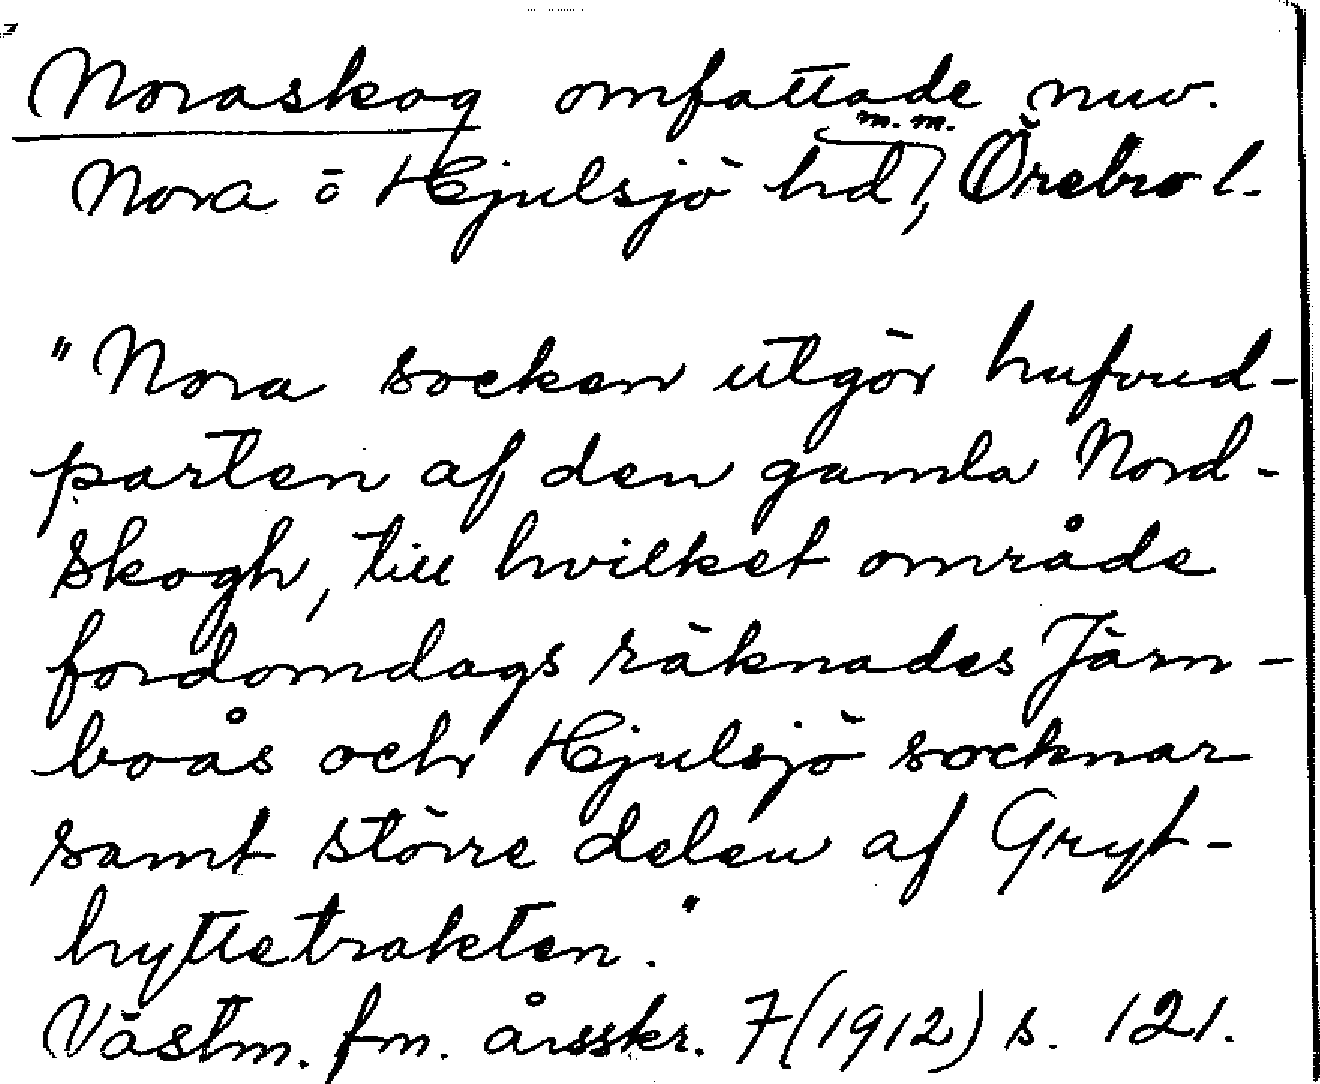 Noraskog omfattade nuv.
m.m.
Nora o Hjulsjö hd, Örebro l.
"Nora socken utgör hufvud-
parten af den gamla Nord-
skogh, till hvilket område
fordomdags räknades Järn-
boås och Hjulsjö socknar
samt större delen af Gryt-
hyttetrakten."
Västm. fm. årsskr. 7(1912) s. 121.